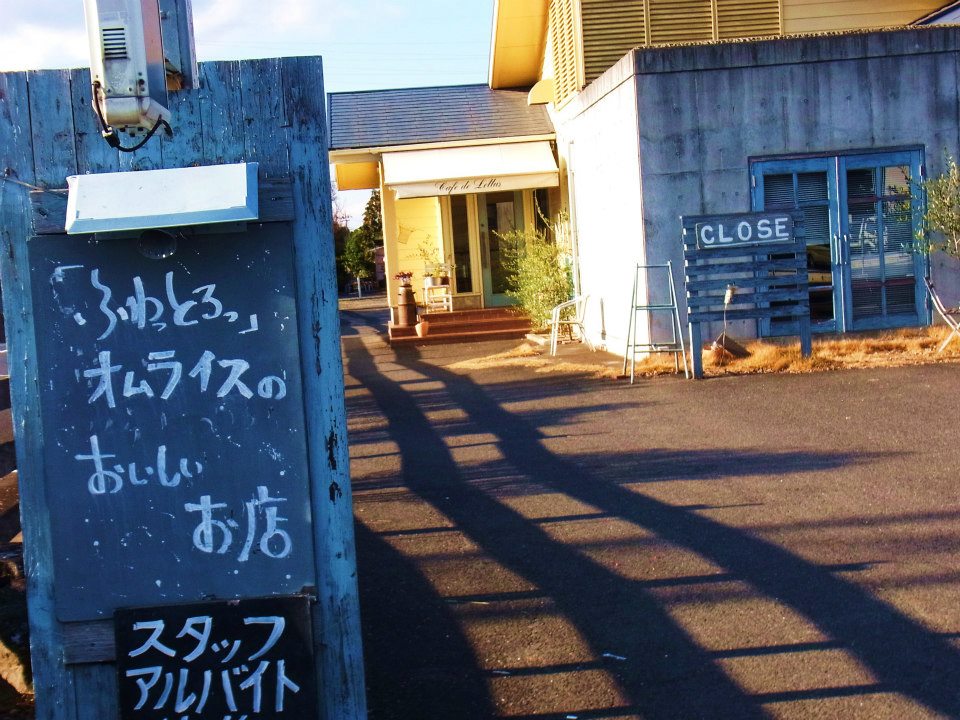 「ふわっとろっ」
オムライスの
おいしい
お店
スタッフ
アルバイト
Cafe de Lottus
CLOSE